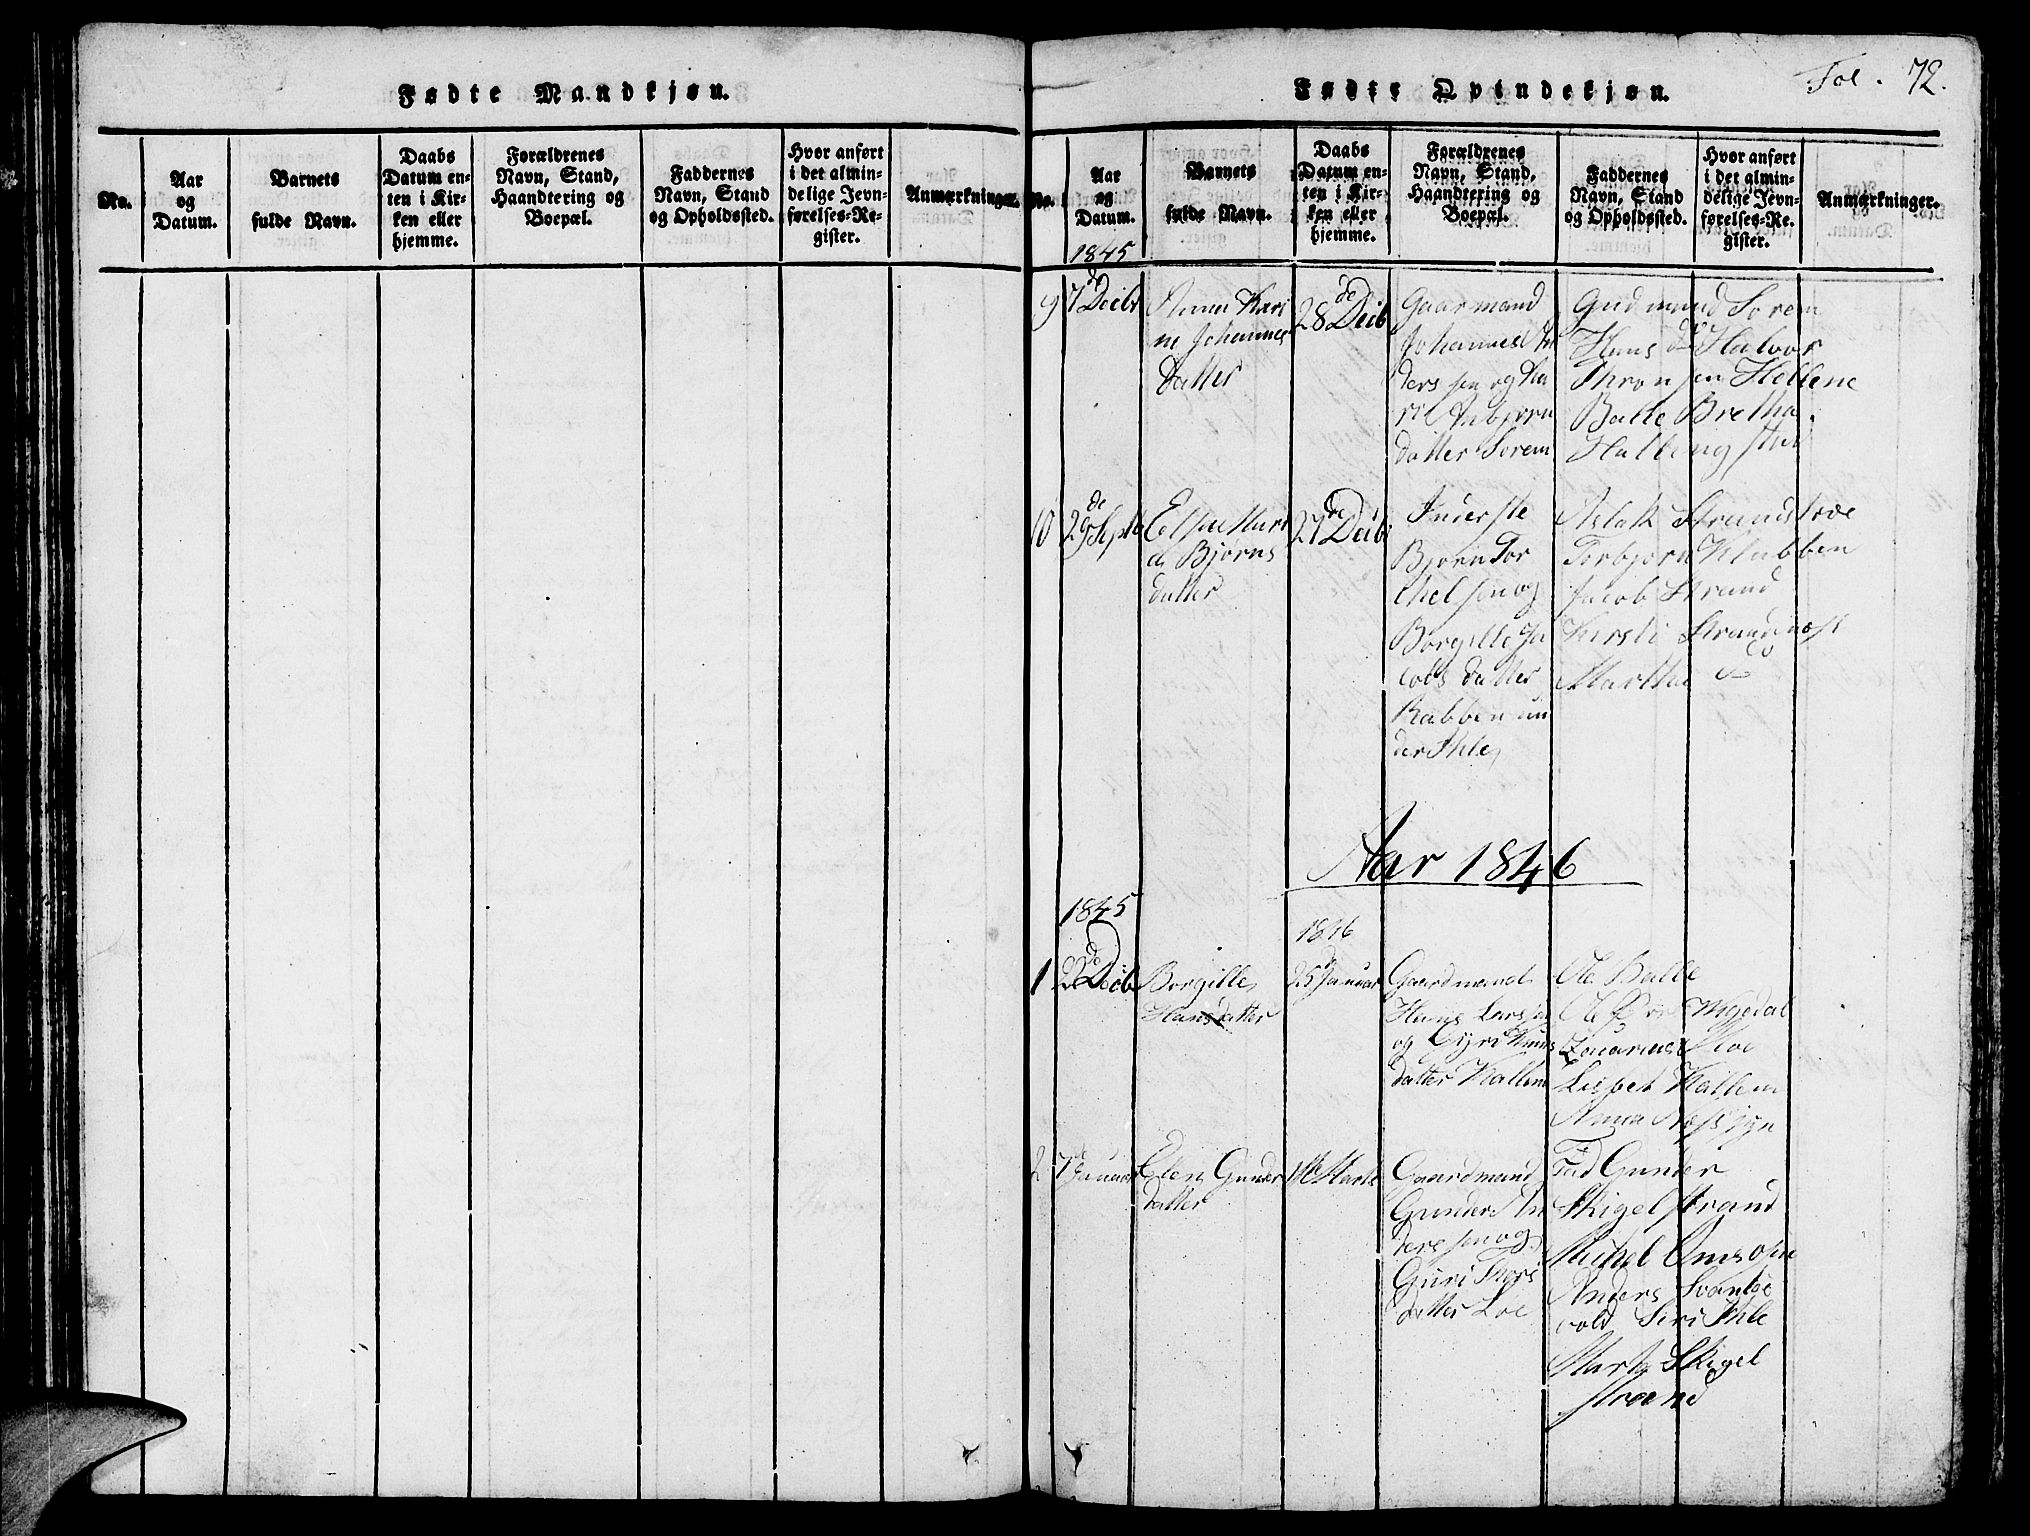 Fødte Mandkjøn.
No.
Aar
og
Datum.
Barnets
fulde Navn.
Daabs
Datum en-
ten i Kir-
ken eller
hjemme.
Forældrenes
Navn, Stand,
Haandtering og
Boepæl.
Faddernes
Navn, Stand
og Opholdssted.
Hvor anført
i det almin-
delige Jevn-
førelses-Re-
gister.
Anmærkninger.
Fødte Qvindekjøn.
Fol. 72.
No.
Aar
og
Datum.
Barnets
fulde Navn.
Daabs
Datum en-
ten i Kir-
ken eller
hjemme.
Forældrenes
Navn, Stand,
Haandtering og
Boepæl.
Faddernes
Navn, Stand
og Opholdssted.
Hvor anført
i det almin-
delige Jevn-
førelses-Re-
gister.
Anmærkninger.
1845
9
7de Decbr
Anne Kari
ne Johannes
datter
28de Decb
Gaarmand
Johannes An
dersen og Ka
ri Anbjørn
datter Sørem
Gudmund Sørem
Hans do Halvor
Thronsen Hellene
Balle Bretha
Halbing stad
10
29de Septb
Elsse Mari
a Bjørns
datter
27de Decb
Inderste
Bjørn Tor
chelsen og
Borgille Ja
cobs datter
Rabben un
der Ihle
Aslak Strandskoe
Torbjørn Klubben
Jacob Strand
Kirsti Strandnæss
Martha do
Aar 1846
1845
1846
1
22de Decb
Borgille
Hansdatter
25de Januar
Gaardmand
Hans Larsen
og Gyri Knuds
datter Kallem
Ole Balle
Ole Migedal
Zacarias Moe
Lisbet Kallem
Anna
2
7de Januar
Elen Gunder
datter
Marts
Gaardmand
Gunder An
dersen og
Guri Thors
datter Loe
Gunder
Skigelstrand
Michel Omsosen
Anders Svantse
vold Siri Ihle
Marta Skigel
strand